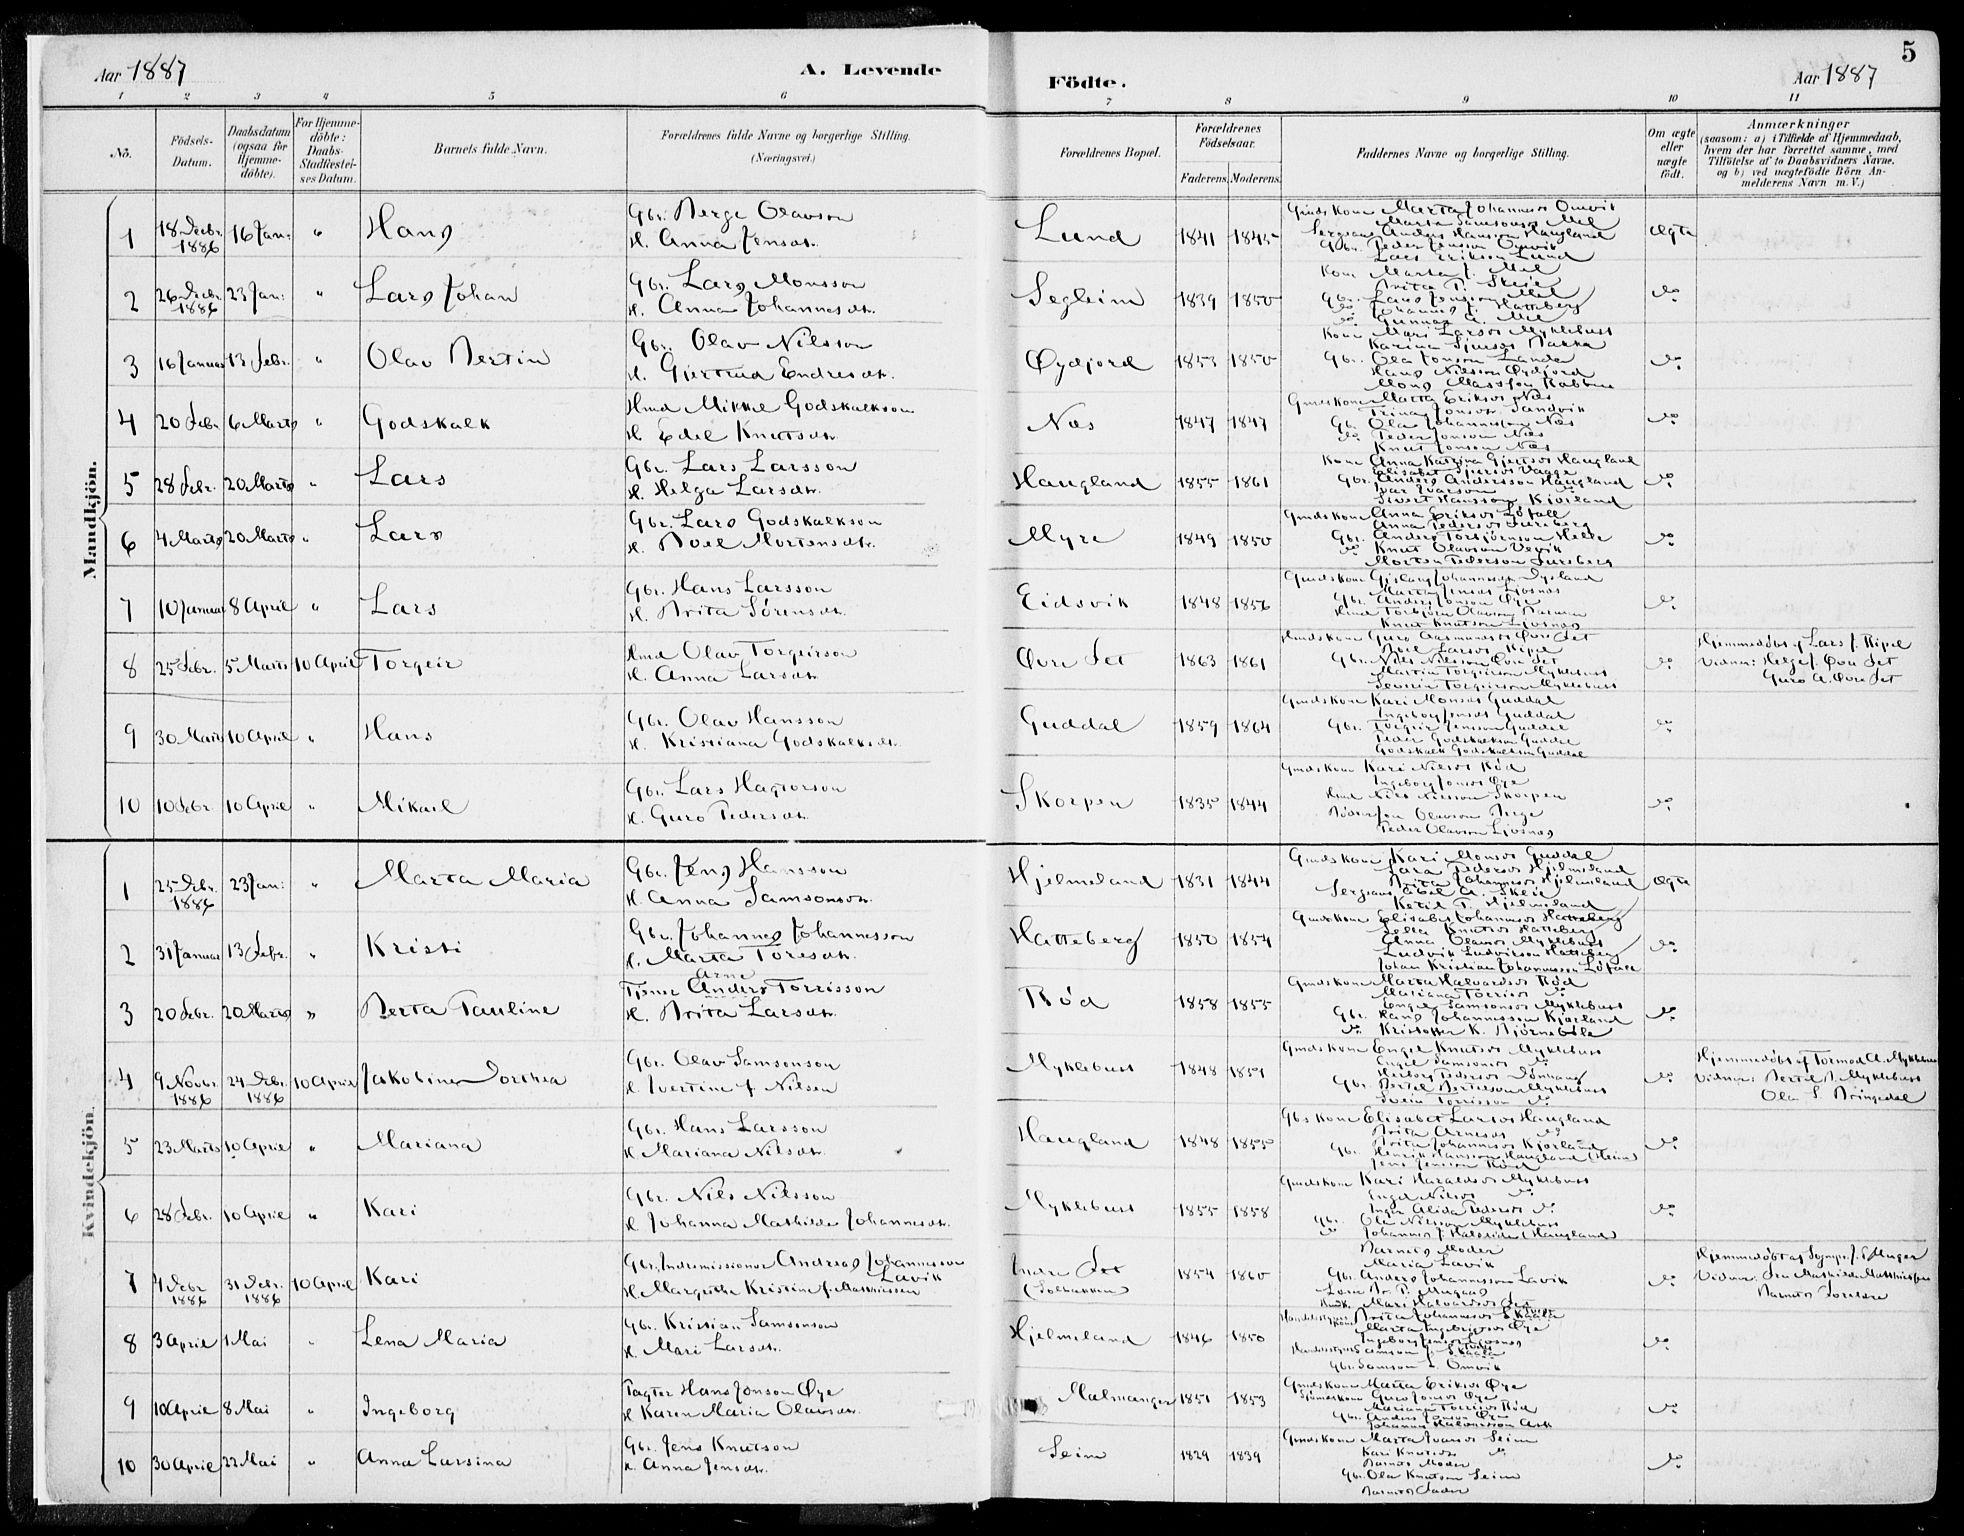 5
Aar 1887
A. Levende
Födte.
Aar 1887
1 2 3 4 5 6 7 8 9 10 11
Nö.
Födsels-
Datum.
Daabsdatum
(ogsaa for
Hjemme-
döbte).
For Hjemme-
döbte:
Daabs-
Stadfæstel-
ses Datum.
Barnets fulde Navn.
Forældrenes fulde Navne og borgerlige Stilling.
(Næringsvei.)
Forældrenes Bopæl.
Forældrenes
Födselsaar.
Faderens. Moderens.
Faddernes Navne og borgerlige Stilling.
Om ægte
eller
uægte
födt.
Anmærkninger
(saasom: a) i Tilfælde af Hjemmedaab,
hvem der har forrettet samme, med
Tilföielse af to Daabsvidners Navne.
og b) ved uægtefödte Börn An-
melderens Navn m. V.)
Mandkjön.
1 18 Decbr. 1886 16 Jan: " Hans
Gbr. Berge Olavson
H. Anna Jensdtr.
Lund 1841 1845
Gmds Kone Marta Johannesd. Omvik
Marta Samsonsd. Mel
Sergeant Anders Hansson Haugland
Gbr. Peder Jensson Omvik
Lars Erikson Lund
Ægte
2 26 Decbr. 1886 23 Jan: " Lars Johan
Gbr. Lars Monsson
H. Anna Johannesdtr.
Segleim 1839 1850
Kone Marta J. Mel
Brita T. Skeie
Gbr. Lars Jensson Mel
do Johannes J. Hatteberg
do Gunnar A. Mel
do
3 16 Januar 13 Febr. " Olav Bertin
Gbr. Olav Nilsson
H. Gjertrud Endresdtr.
Øydjord 1853 1850
Kone Mari Larsd. Myklebust
Karina Sjursd. Bakka
Gbr. Ola Jonson Landa
Hans Nilsson Øydjord
do
4 20 Febr. 6 Marts " Godskalk
Hmd Mikkel Godskalkson
H. Edel Knutsdtr.
Næs 1847 1847
Gmds Kone Marta Eriksd. Næs
Trina Jonsdtr. Sandvik
Gbr. Ola Johannesson Næs
do Peder Jonson Næs
Knut Jonson Næs
do
5 28 Febr. 20 Marts " Lars
Gbr. Lars Larsson
H. Helga Larsdtr.
Haugland 1855 1861
Kone Anna Katrina Gjertsd. Haugland
Elisabet Sjursd. Vaage
Gbr. Anders Andersson Haugland
Ivar Ivarson do
Sivert Hansson Kjorland
do
6 4 Marts 20 Marts " Lars
Gbr. Lars Godskalkson
H. Boel Mortensdtr.
Myre 1849 1850
Gmds Kone Anna Eriksd. Løfall
Anna Pedersd. Fureberg
Gbr. Anders Torbjørnson Helle
do Knut Olavson Vevik
Morten Pederson Fureberg
do
7 10 Januar 8 April " Lars
Gbr. Hans Larsson
H. Brita Sørensdtr.
Eidsvik 1848 1856
Gmds Kone Gislaug Johannesdtr. Dysland
Marta Jensd. Ljosnes
Gbr. Anders Jonson Øye
Knut Knutson Ljosnes
do
8 25 Febr. 5 Marts 10 April Torgeir
Hmd Olav Torgeirson
H. Anna Larsdtr.
Øvre Set 1863 1861
Hmds Kone Guro Aasmundsd. Øvre Set
Boel Larsd. Ripel
Gbr. Nils Nilsson Øvre Set
Martin Torgeirson Myklebust
Severin Torgeirson Myklebust
do
Hjemmedøbt af Lars J. Ripel
Vidner: Helge J. Øvre Set
Guro A. Øvre Set
9 30 Marts 10 April " Hans
Gbr. Olav Hansson
H. Kristiana Godskalksdtr.
Guddal 1859 1864
Gmds Kone Kari Monsd. Guddal
Ingeborg Jensd. Guddal
Gbr. Torgeir Jensson Guddal
Peder Godskalkson Guddal
Godskalk Godskalkson Guddal
do
10 10 Febr. 10 April " Mikael
Gbr. Lars Hagtorson
H. Guro Pedersdtr.
Skorpen 1835 1844
Gmds Kone Kari Nilsd. Rød
Ingeborg Jonsd. Øye
Hmd Nils Nilsson Skorpen
Peder Olavson Ljosnes
do
Kvindekjön.
1 25 Decbr. 1886 23 Jan: " Marta Maria
Gbr. Jens Hansson
H. Anna Samsonsdtr.
Hjelmeland 1831 1844
Gmds Kone Kari Monsd. Guddal
Sara Pedersd. Hjelmeland
Brita Johannesd. Hjelmeland
Sergeant Abel A. Skeie
Ketil T. Hjelmeland
Ægte
2 31 Januar 13 Febr. " Kristi
Gbr. Johannes Johannesson
H. Marta Toresdtr.
Hatteberg 1850 1854
Gmds Kone Elisabet Johannesd. Hatteberg
Sella Knutsd. Hatteberg
Anna Olavsd. Myklebust
Ludvik Ludvikson Hatteberg
Johan Kristian Johannesson Løfall
do
3 20 Febr. 20 Marts " Berta Pauline
Arne
Tjener Anders Torrisson
H. Brita Larsdtr.
Rød 1858 1855
Gmds Kone Marta Halvardsd. Rød
Mariana Torrisd. do
Engel Samsonsd. Myklebust
Gbr. Hans Johannesson Kjorland
do Kristoffer K. Bjørnebøle
do
4 9 Novbr. 1886 24 Decbr. 1886 10 April Jakobine Dorthea
Gbr. Olav Samsonson
H. Ivertine f. Nilsen
Myklebust 1848 1851
Gmds Kone Engel Knutsd. Myklebust
Engel Samsonsd. do
Herborg Pedersd. Dønhaug
Gbr. Bertel Bertelson Myklebust
Svein Torrisson do
do
Hjemmedøbt af Tormod A. Myklebust
Vidner: Bertel B. Myklebust
Ola S. Bringedal
5 23 Marts 10 April " Mariana
Gbr. Hans Larsson
H. Mariana Nilsdtr.
Haugland 1848 1855
Gbs Kone Elisabet Larsd. Haugland
Brita Arnesd. do
Brita Johannesd. Kjorland
Gbr. Henrik Hansson Haugland (Heim)
Jens Jensson Rød
do
6 28 Febr. 10 April " Kari
Gbr. Nils Nilsson
H. Johanna Mathilde Johannesdtr.
Myklebust 1855 1858
Gmds Kone Kari Haraldsd. Myklebust
Engel Nilsd. do
Inger Alida Pedersd. do
Gbr. Ola Nilsson Myklebust
do Johannes J. Halseide (Haugland)
do
7 4 Decbr 1886 31 Decbr. 1886 10 April Kari
Gbr. Indremissionær Andreas Johannesson Lavik
H. Margrethe Kristine f. Matthiessen
Indre Set
(Solbakken) 1854 1860
Barnets Moder
Maria Lavik
Gbr. Anders Johannesson Lavik
Mari Halvardsd. Set
do
Hjemmedøbt af Sognepr. J. S. Munger
Barnets Forældre
8 3 April 1 Mai " Lena Maria
Gbr. Kristian Samsonson
H. Mari Larsdtr.
Hjelmeland 1846 1850
Brita Johannesd. Skaala
Marta Ingebrigtsd. Øye
Ingeborg Jensd. Ljosnes
Samson J. Skaala
Gbr. Samson L. Omvik
do
9 10 April 8 Mai " Ingeborg
Pagter Hans Jonson Øye
H. Karen Maria Olavsdtr.
Malmanger 1851 1853
Gmds Kone Marta Eriksd. Øye
Guro Jonsd. Øye
Mariana Torrisd. Rød
Gbr. Anders Jonson Øye
Johannes Halvardsson Ask
do
10 30 April 22 Mai " Anna Larsina
Gbr. Jens Knutson
H. Anna Jensdtr.
Seim 1829 1839
Gmds Kone Marta Ivarsd. Seim
Kari Knutsd. do
Barnets Moder
Gbr. Ola Knutson Seim
Barnets Fader
do